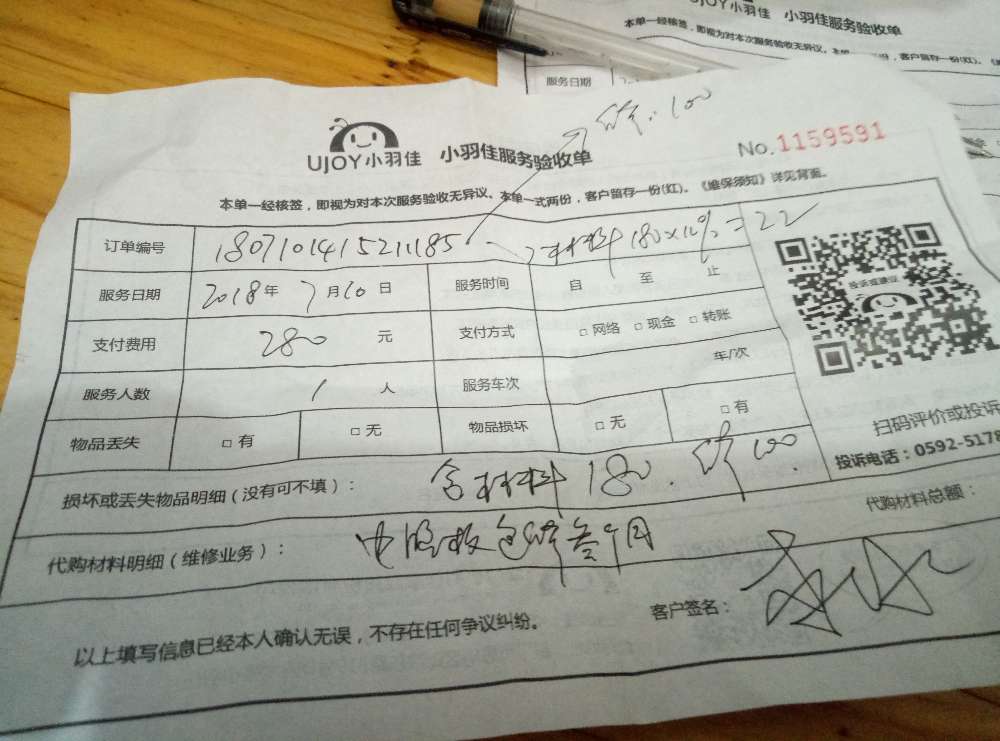 UJOY小羽佳 小羽佳服务验收单
本单一经核签，即视为对本次服务验收无异议、本
服务日期
修:100
UJOY小羽佳 小羽佳服务验收单
No.1159591
本单一经核签，即视为对本次服务验收无异议、本单一式两份，客户留存一份(红)。《维保须知》详见背面。
订单编号 180710141521185 材料180×12%=22
服务日期 2018年7月10日 服务时间 自 至 止
支付费用 280 元 支付方式 □网络 □现金 □转账
服务人数 1 人 服务车次 年/次
物品丢失 □有 □无 物品损坏 □无 □有
投诉或建议
扫码评价或投诉
投诉电话：0592-5178
损坏或丢失物品明细（没有可不填）： 含材料180. 修100.
代购材料总额：
代购材料明细（维修业务）： 电脑板包修叁个月
以上填写信息已经本人确认无误，不存在任何争议纠纷。
客户签名：